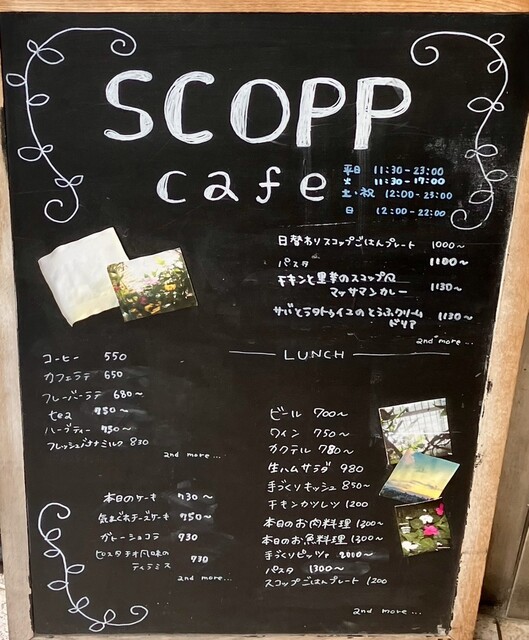 SCOPP
cafe
平日 11:30-23:00
火 11:30-17:00
土・祝 12:00-23:00
日 12:00-22:00
日替わりスコップごはんプレート 1000~
パスタ 1100~
チキンと里芋のスコップ風
マッサマンカレー 1130~
サバとラタトゥイユのとうふクリーム
ドリア 1130~
and more...
LUNCH
コーヒー 550
カフェラテ 650
フレーバーラテ 680~
tea 750~
ハーブティー 750~
フレッシュバナナミルク 830
and more...
本日のケーキ 730~
気まぐれチーズケーキ 750~
ガトーショコラ 730
ピスタチオ風味の
ティラミス 730
and more...
ビール 700~
ワイン 750~
カクテル 780~
生ハムサラダ 980
手づくりキッシュ 850~
チキンカツレツ 1200
本日のお肉料理 1300~
本日のお魚料理 1300~
手づくりピッツァ 2000~
パスタ 1300~
スコップごはんプレート 1200
and more...